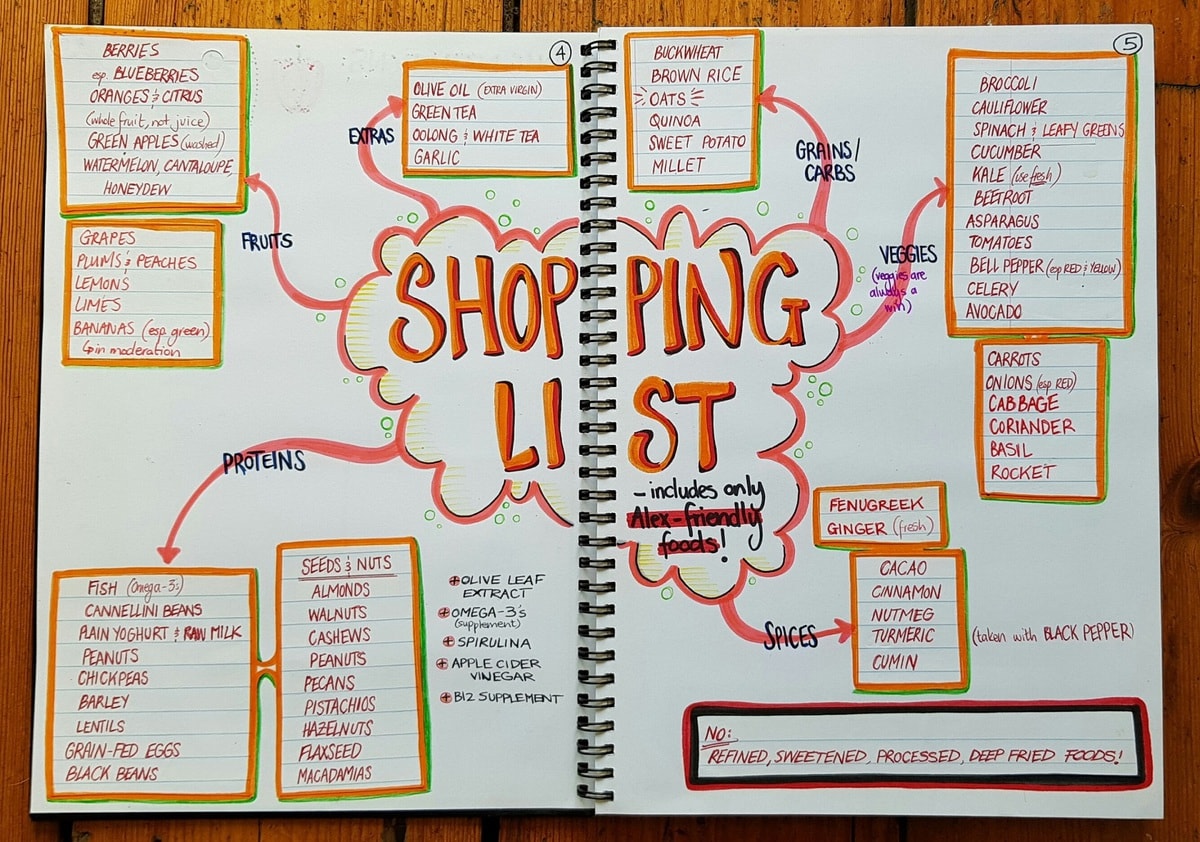 4
5
SHOPPING
LIST
- includes only
Alex-friendly
foods!
FRUITS
BERRIES
esp. BLUEBERRIES
ORANGES & CITRUS
(whole fruit, not juice)
GREEN APPLES (washed)
WATERMELON, CANTALOUPE,
HONEYDEW
GRAPES
PLUMS & PEACHES
LEMONS
LIMES
BANANAS (esp. green)
↳ in moderation
EXTRAS
OLIVE OIL (EXTRA VIRGIN)
GREEN TEA
OOLONG & WHITE TEA
GARLIC
GRAINS/
CARBS
BUCKWHEAT
BROWN RICE
OATS
QUINOA
SWEET POTATO
MILLET
VEGGIES
(veggies are
always a
win)
BROCCOLI
CAULIFLOWER
SPINACH & LEAFY GREENS
CUCUMBER
KALE (use fresh)
BEETROOT
ASPARAGUS
TOMATOES
BELL PEPPER (esp RED & YELLOW)
CELERY
AVOCADO
CARROTS
ONIONS (esp RED)
CABBAGE
CORIANDER
BASIL
ROCKET
PROTEINS
FISH (Omega-3's)
CANNELLINI BEANS
PLAIN YOGHURT & RAW MILK
PEANUTS
CHICKPEAS
BARLEY
LENTILS
GRAIN-FED EGGS
BLACK BEANS
SEEDS & NUTS
ALMONDS
WALNUTS
CASHEWS
PEANUTS
PECANS
PISTACHIOS
HAZELNUTS
FLAXSEED
MACADAMIAS
+ OLIVE LEAF
EXTRACT
+ OMEGA-3's
(supplement)
+ SPIRULINA
+ APPLE CIDER
VINEGAR
+ B12 SUPPLEMENT
SPICES
FENUGREEK
GINGER (fresh)
CACAO
CINNAMON
NUTMEG
TURMERIC (taken with BLACK PEPPER)
CUMIN
NO:
REFINED, SWEETENED, PROCESSED, DEEP FRIED FOODS!